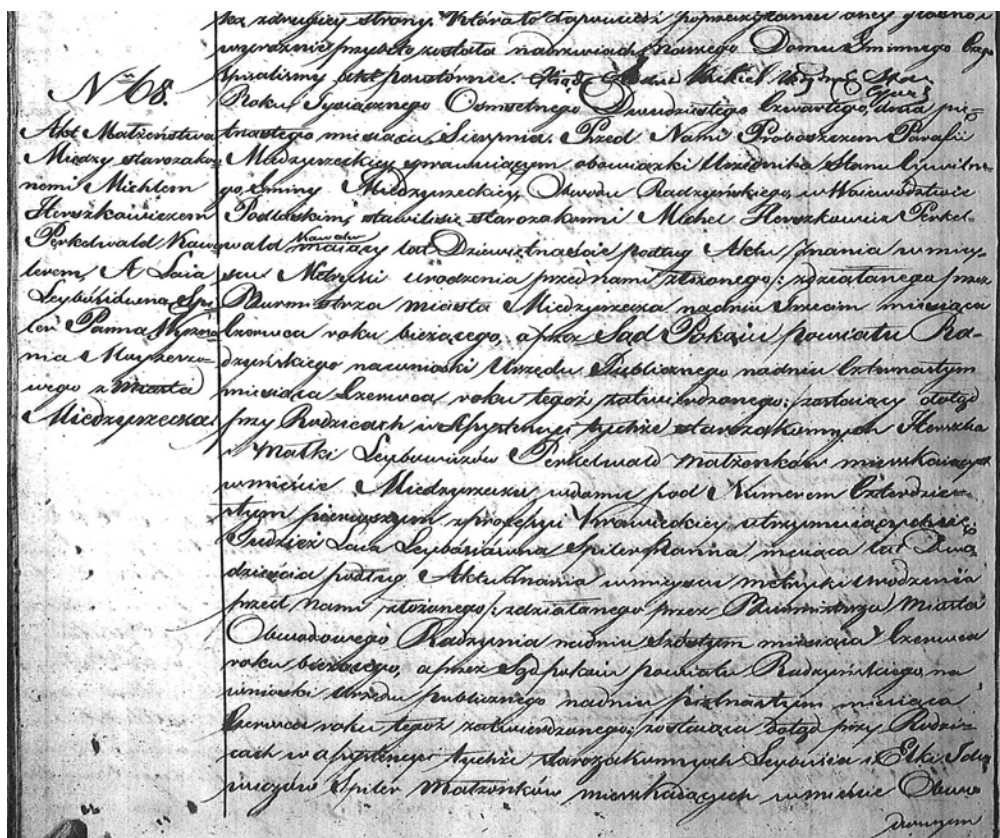 też z drugiey strony. Która to Zapowiedź po przeczytaniu oney głośno i
wyraźnie przybita została na drzwiach naszego Domu Gminnego Czego
spisaliśmy Akt powtórnie.
Nro 68.
Akt Małżeństwa
Między starozakon
nemi Michlem
Herszkowiczem
Perkelwald Kawa
lerem, A Laia
Leybusiowna Spi
ler Panna Wyzna
nia Moyżeszo-
wego z Miasta
Miedzyrzecza
Roku Tysiącznego Osmsetnego Dwudziestego Czwartego, dnia pię-
tnastego miesiąca Sierpnia. Przed Nami Proboszczem Parafii
Miedzyrzeckiey, sprawuiącym obowiązki Urzędnika Stanu Cywilne-
go Gminy Miedzyrzeckiey, Obwodu Radzyńskiego, w Woiewodztwie
Podlaskim, stawili się starozakonni Michel Herszkowicz Perkel-
wald Kawaler maiący lat Dziewiętnaście podług Aktu Znania w miey-
scu Metryki urodzenia przed nami złożonego: zdziałanego przez
Burmistrza miasta Miedzyrzecza na dniu Trzecim miesiąca
Czerwca roku bieżącego, a przez Sąd Pokoiu powiatu Ra-
dzyńskiego na wnioski Urzędu Publicznego na dniu Czternastym
miesiąca Czerwca roku tegoż zatwierdzonego: zostaiący dotąd
przy Rodzicach w Assystencyi tychże starozakonnych Herszka
i Małki Leybowiczów Perkelwald Małżonków mieszkaiących
w mieście Miedzyrzeczu w domu pod Numerem Czterdzie-
stym pierwszym z professyi Krawieckiey utrzymuiących się.
Tudzież Laia Leybusiówna Spiler Panna maiąca lat Dwa
dzieścia podług Aktu Znania w mieyscu metryki Urodzenia
przed nami złożonego: zdziałanego przez Burmistrza Miasta
Obwodowego Radzynia na dniu Szóstym miesiąca Czerwca
roku bieżącego, a przez Sąd pokoiu powiatu Radzyńskiego, na
wnioski Urzędu publicznego na dniu piętnastym miesiąca
Czerwca roku tegoż zatwierdzonego: zostaiąca dotąd przy Rodzi-
cach w assystencyi tychże starozakonnych Leybusia i Elki
Spiler Małżonków mieszkaiących w mieście Obwo
dowym